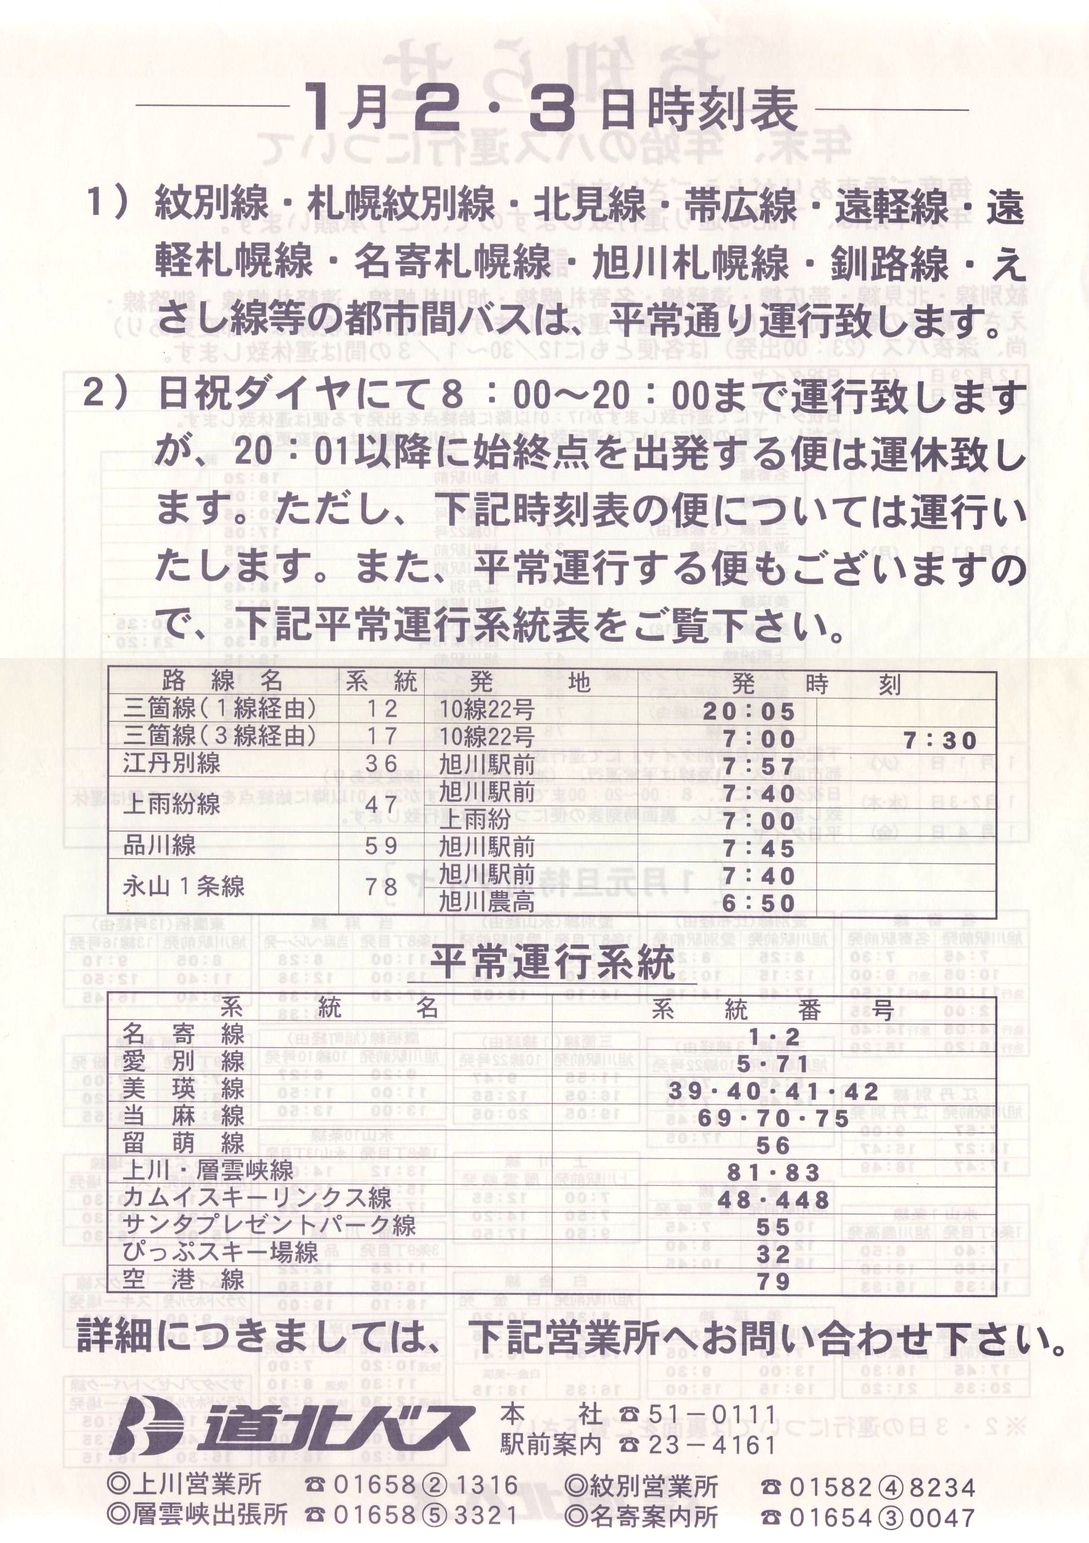 1月2・3日時刻表
1）紋別線・札幌紋別線・北見線・帯広線・遠軽線・遠
軽札幌線・名寄札幌線・旭川札幌線・釧路線・え
さし線等の都市間バスは、平常通り運行致します。
2）日祝ダイヤにて8：00～20：00まで運行致します
が、20：01以降に始終点を出発する便は運休致し
ます。ただし、下記時刻表の便については運行い
たします。また、平常運行する便もございますの
で、下記平常運行系統表をご覧下さい。
路線名 系統 発地 発時刻
三箇線（1線経由） 12 10線22号 20：05
三箇線（3線経由） 17 10線22号 7：00 7：30
江丹別線 36 旭川駅前 7：57
上雨紛線 47 旭川駅前 7：40
上雨紛 7：00
品川線 59 旭川駅前 7：45
永山1条線 78 旭川駅前 7：40
旭川農高 6：50
平常運行系統
系統名 系統番号
名寄線 1・2
愛別線 5・71
美瑛線 39・40・41・42
当麻線 69・70・75
留萌線 56
上川・層雲峡線 81・83
カムイスキーリンクス線 48・448
サンタプレゼントパーク線 55
ぴっぷスキー場線 32
空港線 79
詳細につきましては、下記営業所へお問い合わせ下さい。
道北バス 本社 ☎51－0111
駅前案内 ☎23－4161
◎上川営業所 ☎01658②1316 ◎紋別営業所 ☎01582④8234
◎層雲峡出張所 ☎01658⑤3321 ◎名寄案内所 ☎01654③0047